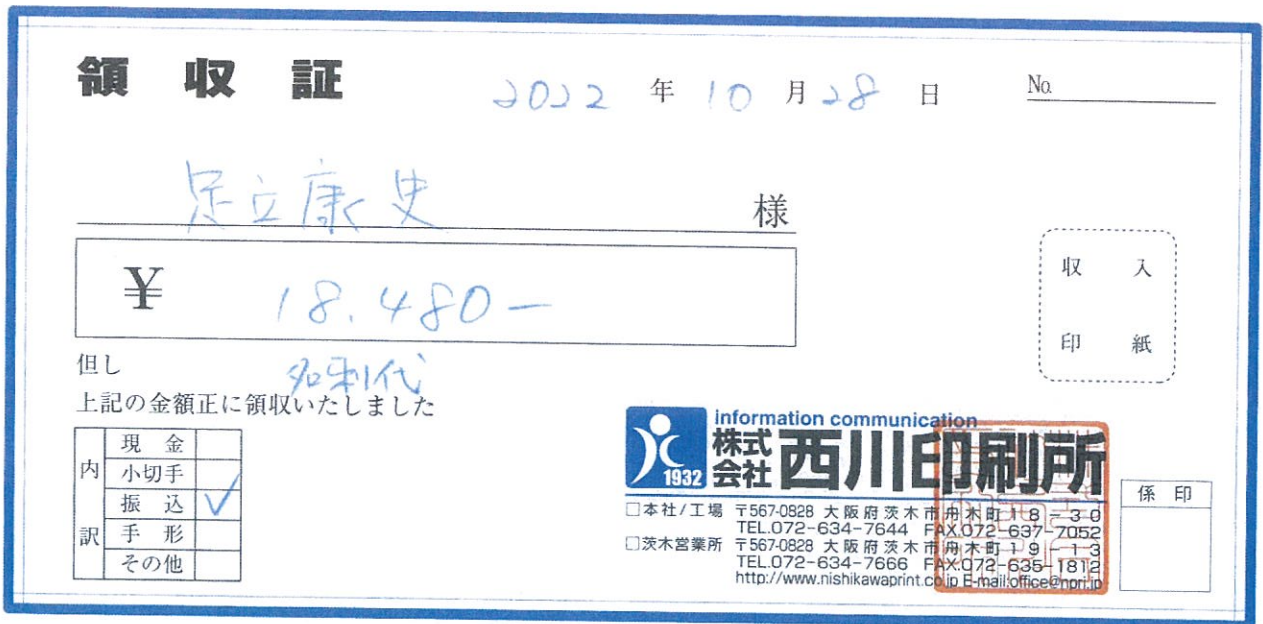 領収証
2022年10月28日
No.
足立康史 様
¥ 18.480-
但し 名刺代
上記の金額正に領収いたしました
内訳
現金
小切手
振込 ✓
手形
その他
収入
印紙
information communication
1932 株式会社 西川印刷所
□本社/工場 〒567-0828 大阪府茨木市舟木町18-30
TEL.072-634-7644 FAX.072-637-7052
□茨木営業所 〒567-0828 大阪府茨木市舟木町19-13
TEL.072-634-7666 FAX.072-635-1812
http://www.nishikawaprint.co.jp E-mail:office@npri.jp
係印